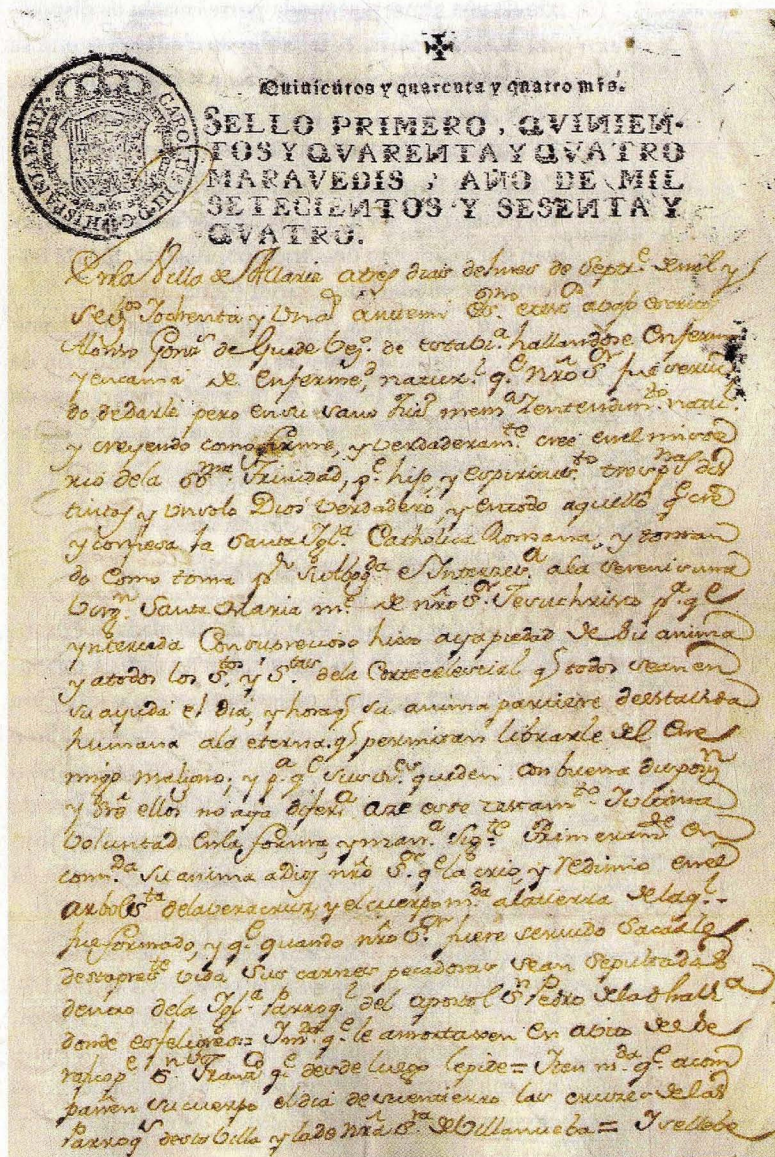 Quinientos y quarenta y quatro mrs.
SELLO PRIMERO, QVINIEN-
TOS Y QVARENTA Y QVATRO
MARAVEDIS, AÑO DE MIL
SETECIENTOS Y SESENTA Y
QVATRO.
CAROLUS III D G HISPANIAR REX
En la Villa de Allariz a tres dias del mes de Septe. de mil y
setos. y ochenta y Una ante mi Essno. e testos. abajo escritos
Alonso Gonzs. de Guede vezo. de esta villa. hallandose enfermo
y en cama de enfermed. natural. qe. nrô Sor. fue servi
do de darle pero en su sano juicio mema. y entendimto. natul.
y creyendo como firme, y verdaderamte. cree en el miste
rio de la SSma. Trinidad, pe. hijo y espiritu sto. tres psnas. dis
tintas y un solo Dios verdadero, y en todo aquello qe. cre
y confiesa la Santa Igla. Catholica Romana, y toman
do como toma pr. su Abogda. e Interzesa. a la serenisima
Virgn. Santa Maria me. de nrô Sor. Jesuchristo pa. qe.
ynterceda Con su precioso hijo aya piedad de su anima
y a todos los Stos. y Stas. de la Corte celestial qe. todos sean en
su ayuda el dia, y hora qe. su anima partiere de esta vida
humana a la eterna. qe. permitan librarle del Ene
migo maligno; y pa. qe. sus vs. queden con buena disposn.
y entre ellos no aya difera. aze este testamto. y ultima
voluntad en la forma, y mana. sigte. Primeramte. en
comda. su anima a Dios nrô Sr. qe. la crio, y redimio en el
arbol Sta. de la vera cruz, y el cuerpo mda. a la tierra de la ql.
fue formado, y qe. quando nrô Sor. fuere servido sacarle
de esta preste. vida sus carnes pecadoras sean sepultadas
dentro de la Igla. Parroql. del apostol Sn. Pedro de
donde es feligres = Y mda. qe. le amortaxen en avito de
pe. Sn. Franco. qe. desde luego le pide = Yten mda. qe. acom
pañen su cuerpo el dia de su entierro las cruzes de las
Parroqs. de esta Villa y la de nrâ Sra. de Villanueba = Y se llebe